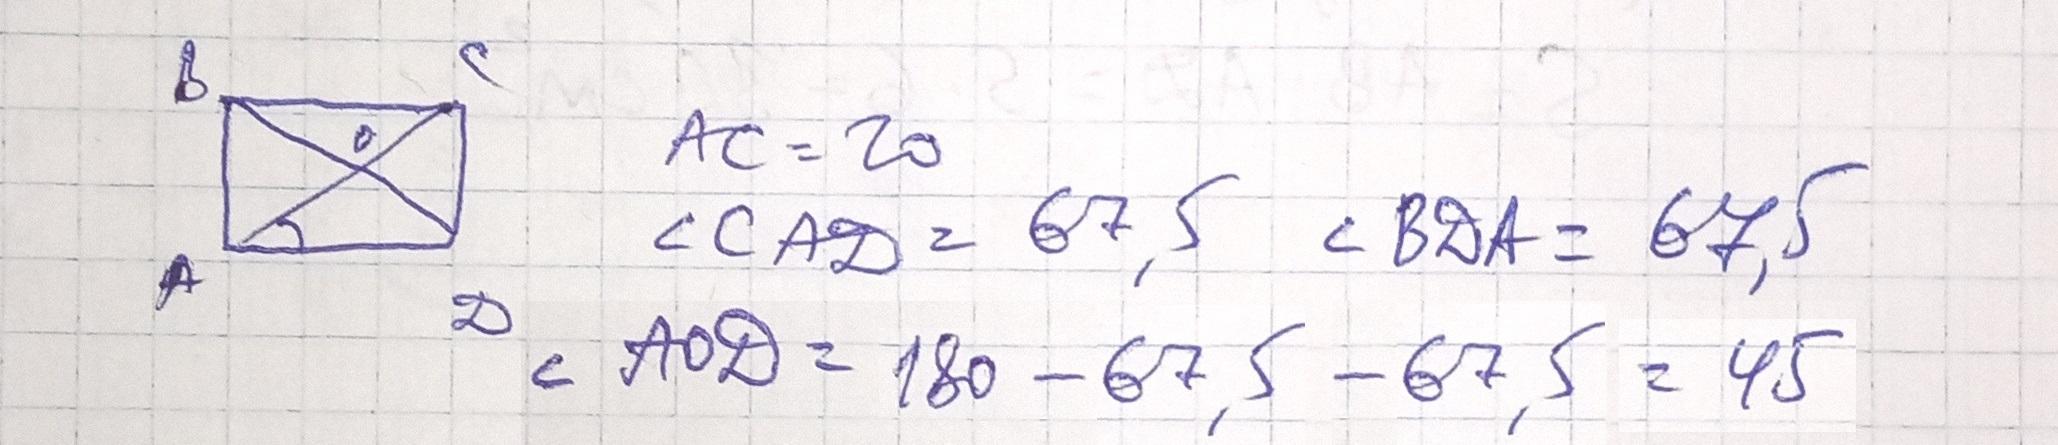 B C
O
AC = 20
<CAD = 67,5 <BDA = 67,5
A D
< AOD = 180 - 67,5 - 67,5 = 45